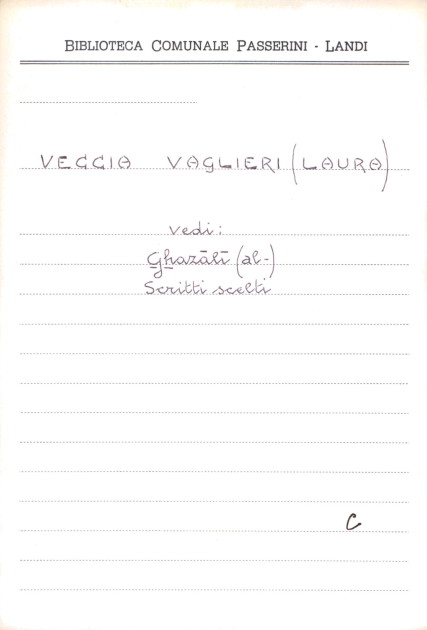 BIBLIOTECA COMUNALE PASSERINI - LANDI
VEGGIA VAGLIERI (LAURA)
vedi:
Ghazālī (al-)
Scritti scelti
C